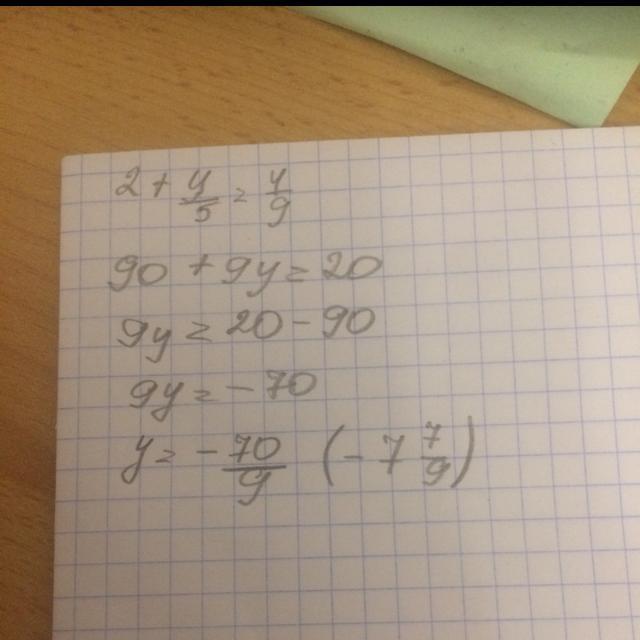 2 + y/5 = 4/9
90 + 9y = 20
9y = 20 - 90
9y = -70
y = - 70/9 (-7 7/9)